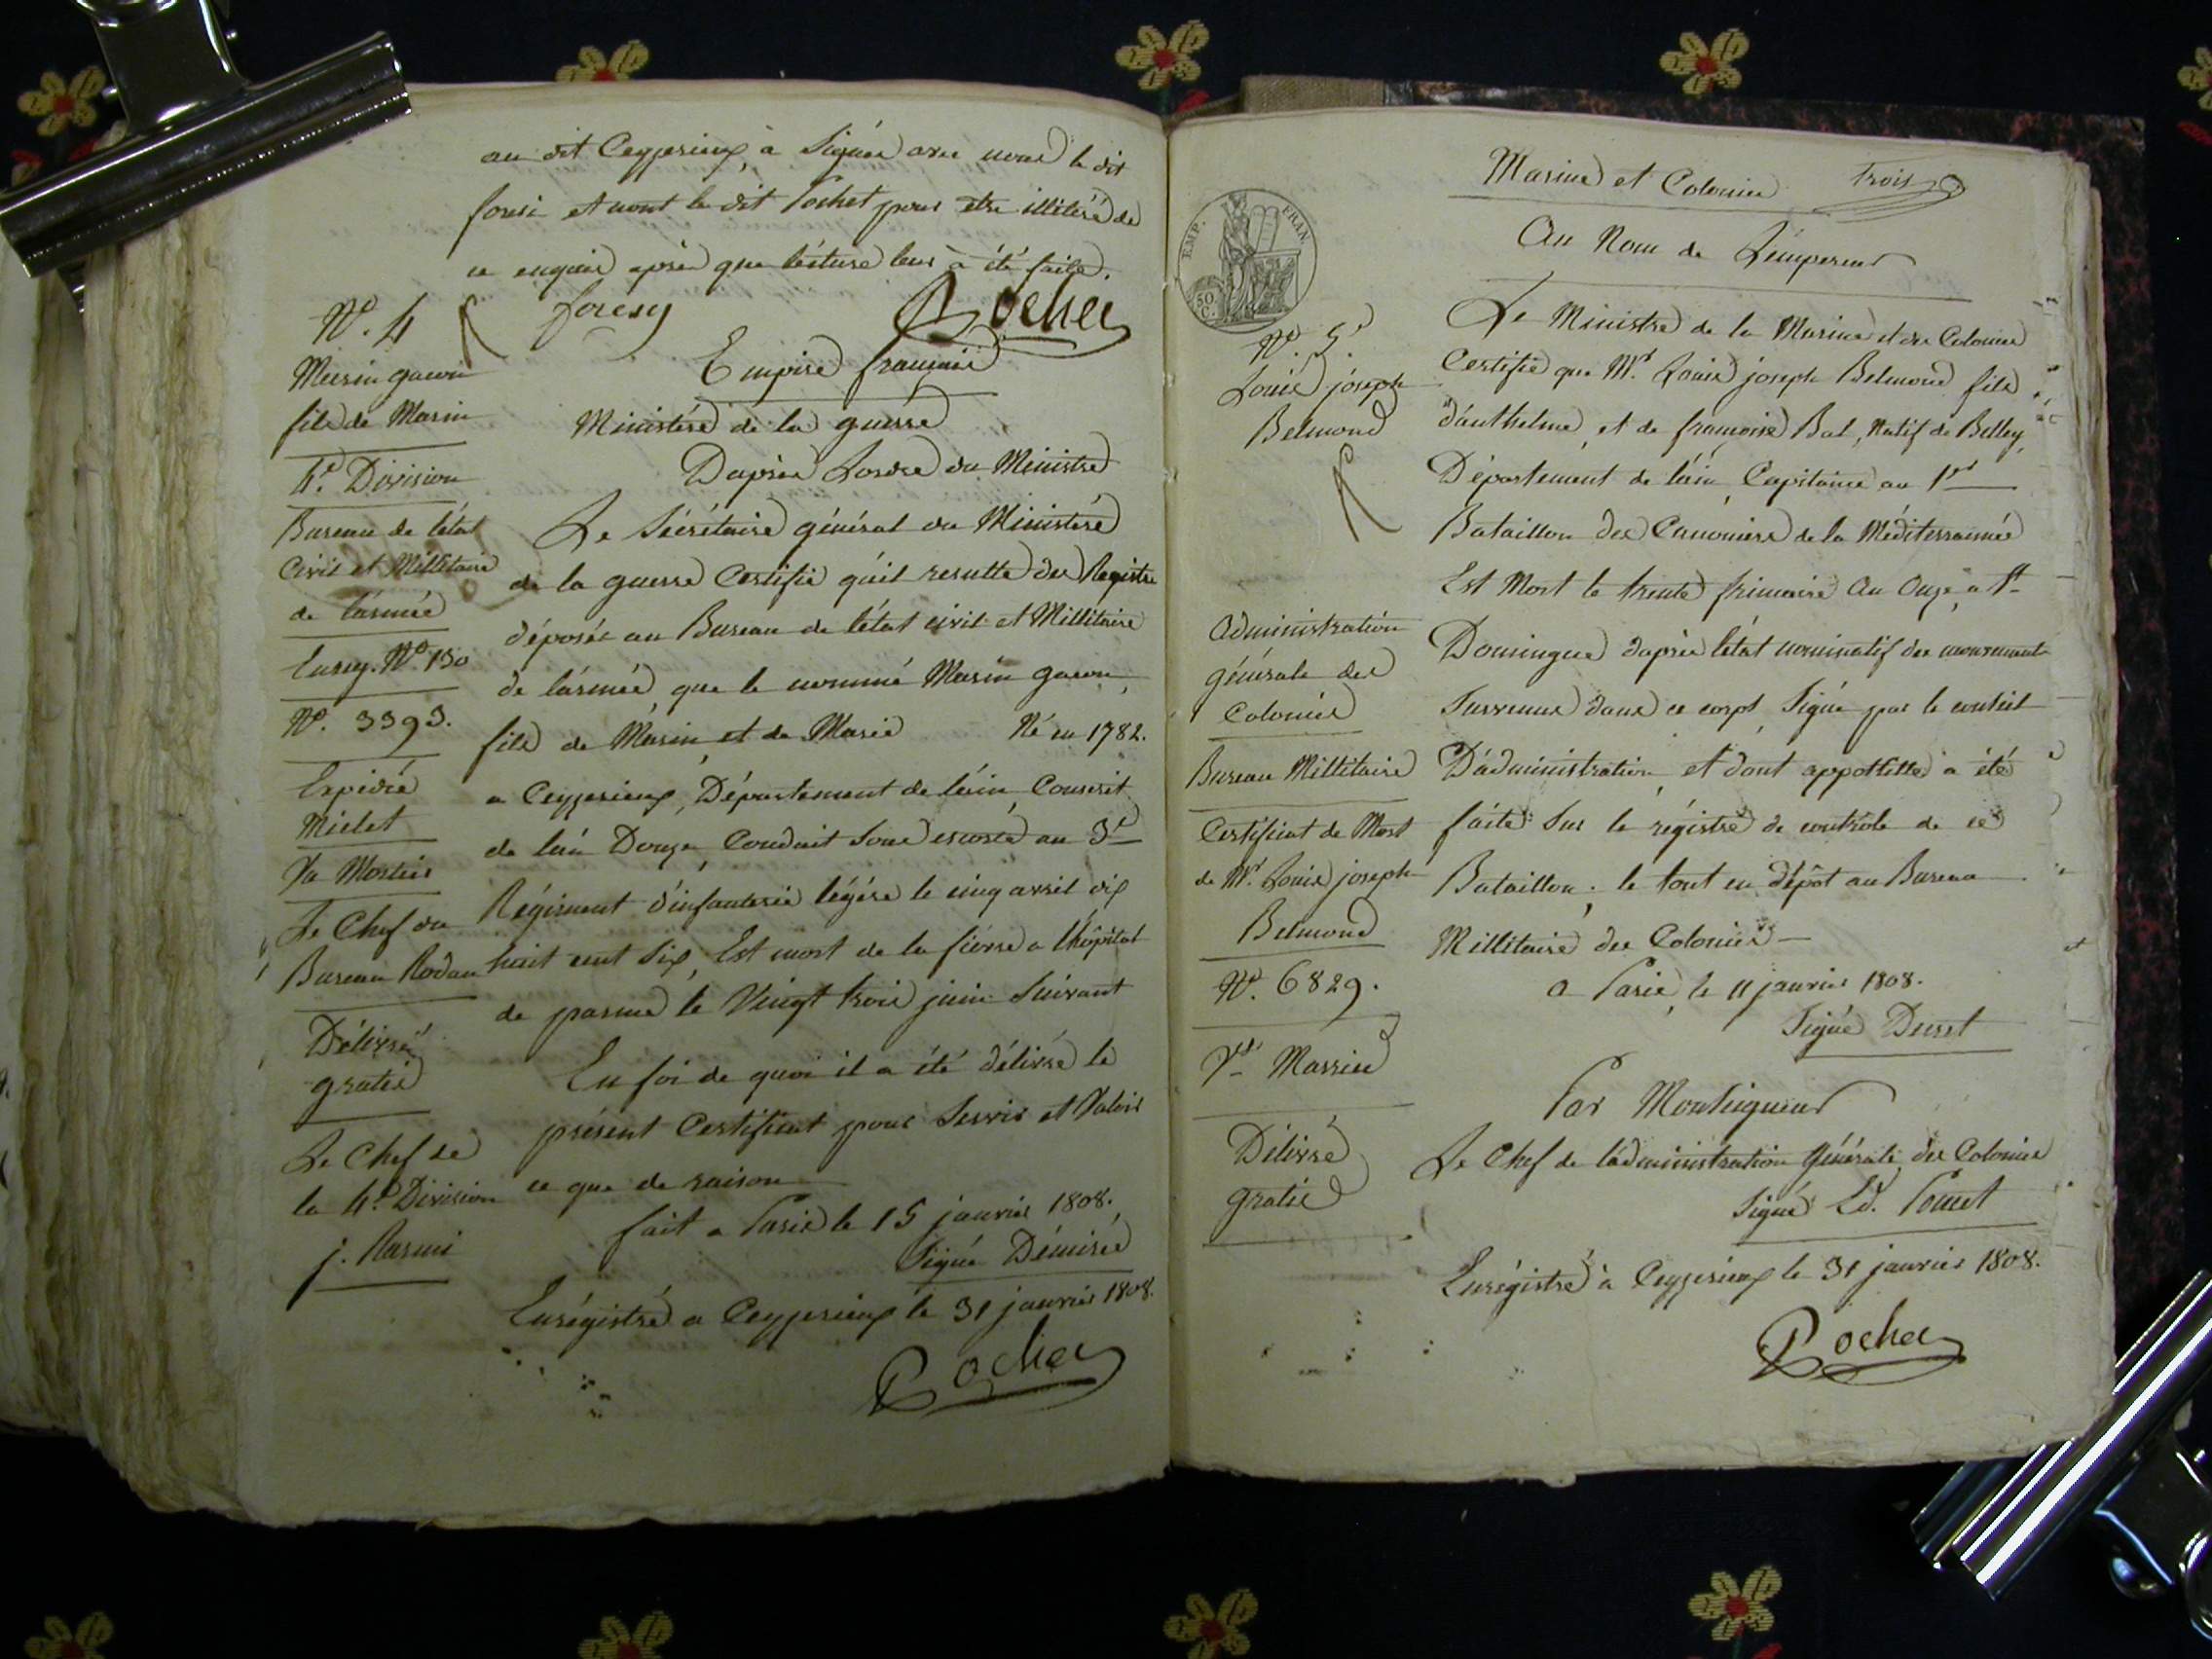 au dit Ceyzerieux, à Signée avec nous le dit
foresi et nont le dit Pochet pour etre illiteré de
ce enquis après que lécture leur à été faite.
foresy
Rochet
N.º 4
Marin gacon
fils de Marin
4.e Division
Bureau de létat
Civil et Millitaire
de lármée
Enreg. Nº 130
Nº. 3393.
Expédié
Miclet
Va Mortier
Le Chef du
Bureau
Délivré
gratis
Le Chef de
la 4.e Division
Empire français
Ministére de la guérre
Daprès Lordre du Ministre
Le Sécrétaire général du Ministere
de la guerre Certifie qu'il resulte des Registre
déposés au Bureau de létat civil et Millitaire
de lármée, que le nommé Marin gacon,
fils de Marin et de Marie Né en 1782.
a Ceyzerieux, Département de láin, Conscrit
de lán Douze, Conduit Sous escorte au 3e
Régiment d'infanterie légére le cinq avril dix
huit cent Six, Est mort de la fiévre a l'hôpital
de parme le Vingt trois juin Suivant
En foi de quoi il a été délivré le
présent Certificat pour Servir et Valoir
ce que de raison
fait a Paris le 15 janvier 1808.
Signé Déniéé
Enrégistré a Ceyzerieux le 31 janvier 1808.
Rochet
EMP. FRAN.
50 C.
Marine et Colonies trois
Au Nom de Lémpereur
Nº. 5.
Louis joseph
Belmond
Administration
générale des
Colonies
Bureau Millitaire
Certificat de Mort
de Mr. Louis joseph
Belmond
Nº. 6829.
Vu Massieu
Délivré
gratis
Le Ministre de la Marine et des Colonies
Certifie que Mr. Louis joseph Belmond fils
d'ánthelme, et de françoise Bal, Natif de Belley,
Département de láin, Capitaine au 1er
Bataillon des Canoniers de la Méditerrannée
Est Mort le trente frimaire An Onze, a St
Domingue daprès létat nominatif des mouvements
Survenus dans ce corps, Signé par le conseil
D'administration, et dont appostille a été
faite Sur le régistre de contrôle de ce
Bataillon; le tout en dépôt au Bureau
Millitaire des Colonies
a Paris, le 11 janvier 1808.
Signé Decret
Par Monseigneur
Le Chef de ládministration Générale des Colonies
Signé Ed. Poncet
Enrégistré à Ceyzerieux le 31 janvier 1808.
Rochet